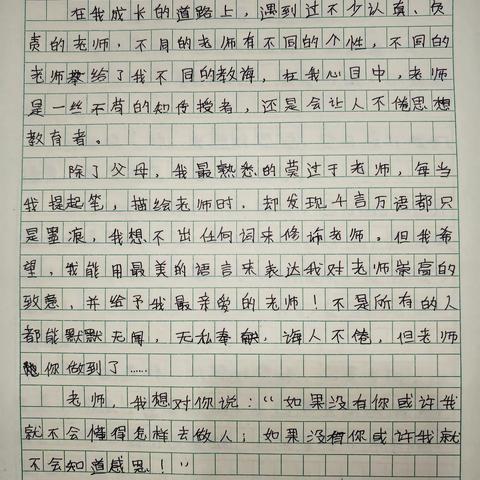 在我成长的道路上，遇到过不少认真、负
责的老师，不同的老师有不同的个性，不同的
老师教给了我不同的教诲，在我心目中，老师
是一些不苟的知传授者，还是会让人不倦思想
教育者。
除了父母，我最熟悉的莫过于老师，每当
我提起笔，描绘老师时，却发现千言万语都只
是墨痕，我想不出任何词来修饰老师。但我希
望，我能用最美的语言来表达我对老师崇高的
致意，并给予我最亲爱的老师！不是所有的人
都能默默无闻，无私奉献，诲人不倦，但老师
您你做到了……
老师，我想对你说：“如果没有你或许我
就不会懂得怎样去做人；如果没有你或许我就
不会知道感恩！”